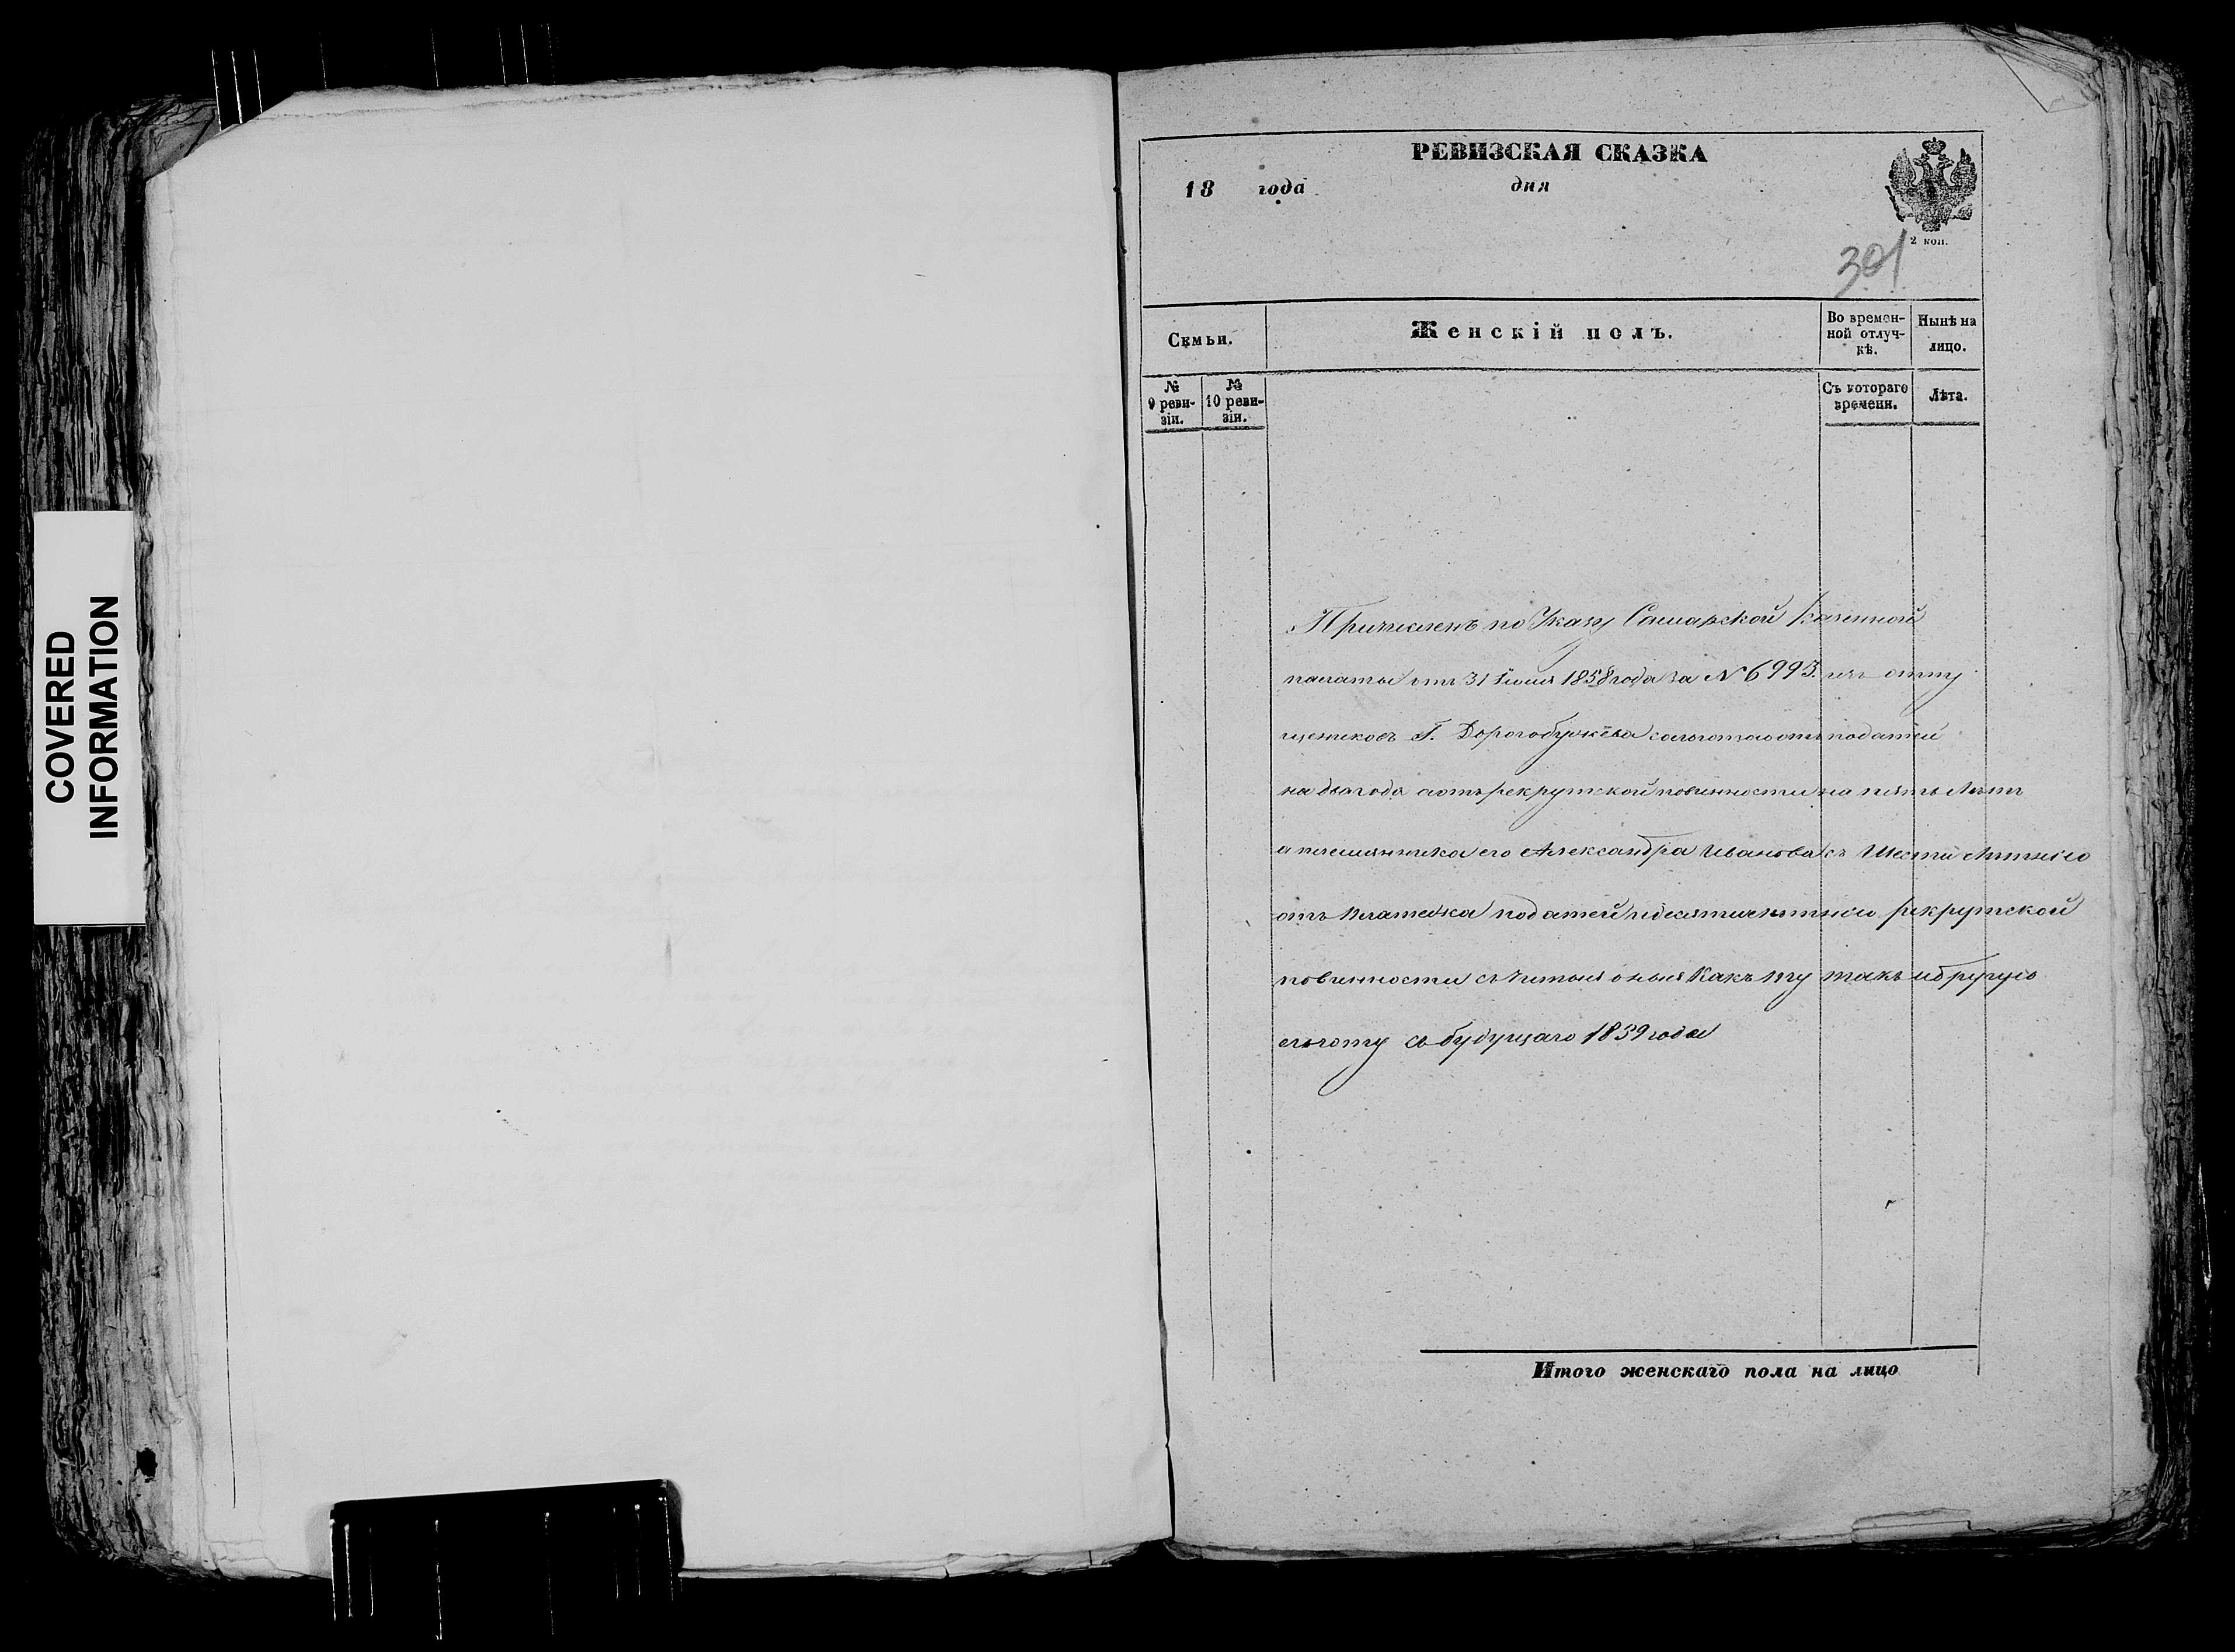 COVERED
INFORMATION
РЕВИЗСКАЯ СКАЗКА
18 года дня
2 коп.
301
Семьи.
Женскій полъ.
Во времен-
ной отлуч-
кѣ.
Нынѣ на
лицо.
№
9 реви-
зіи.
№
10 реви-
зіи.
Съ котораго
времени.
Лѣта.
Причисленъ по Указу Самарской Казенной
палаты отъ 31 Іюля 1858 года за № 6995. изъ отпу
щениковъ Г. Дорогобужева сальготою отъ податей
на два года аотъ рекрутской повинности на пять Лѣтъ
а племянника его Александра Иванова съ Шести Лѣтнею
отъ платежа податей идесятилѣтнею рекрутской
повинности считая оныя Какъ ту такъ идругую
льготу съ будущаго 1859 года
Итого женскаго пола на лицо